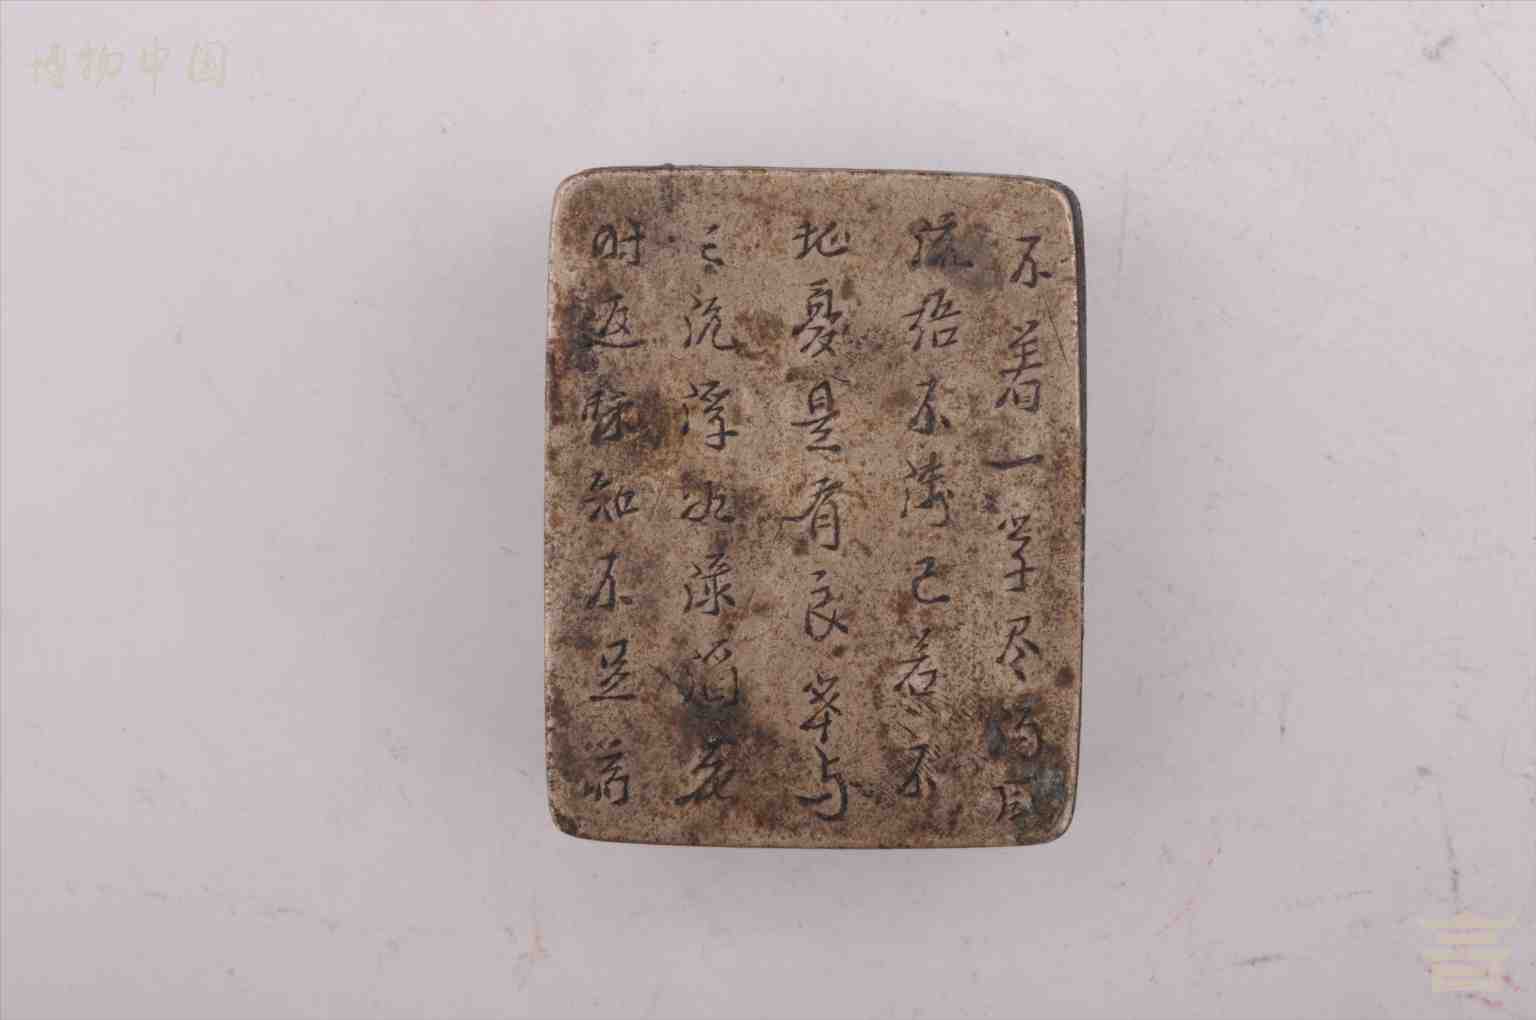 博物中国
不着一字尽得风
流语不涉己若不
堪憂是有良宰与
之沉浮如渌酒花
时返知不足斋